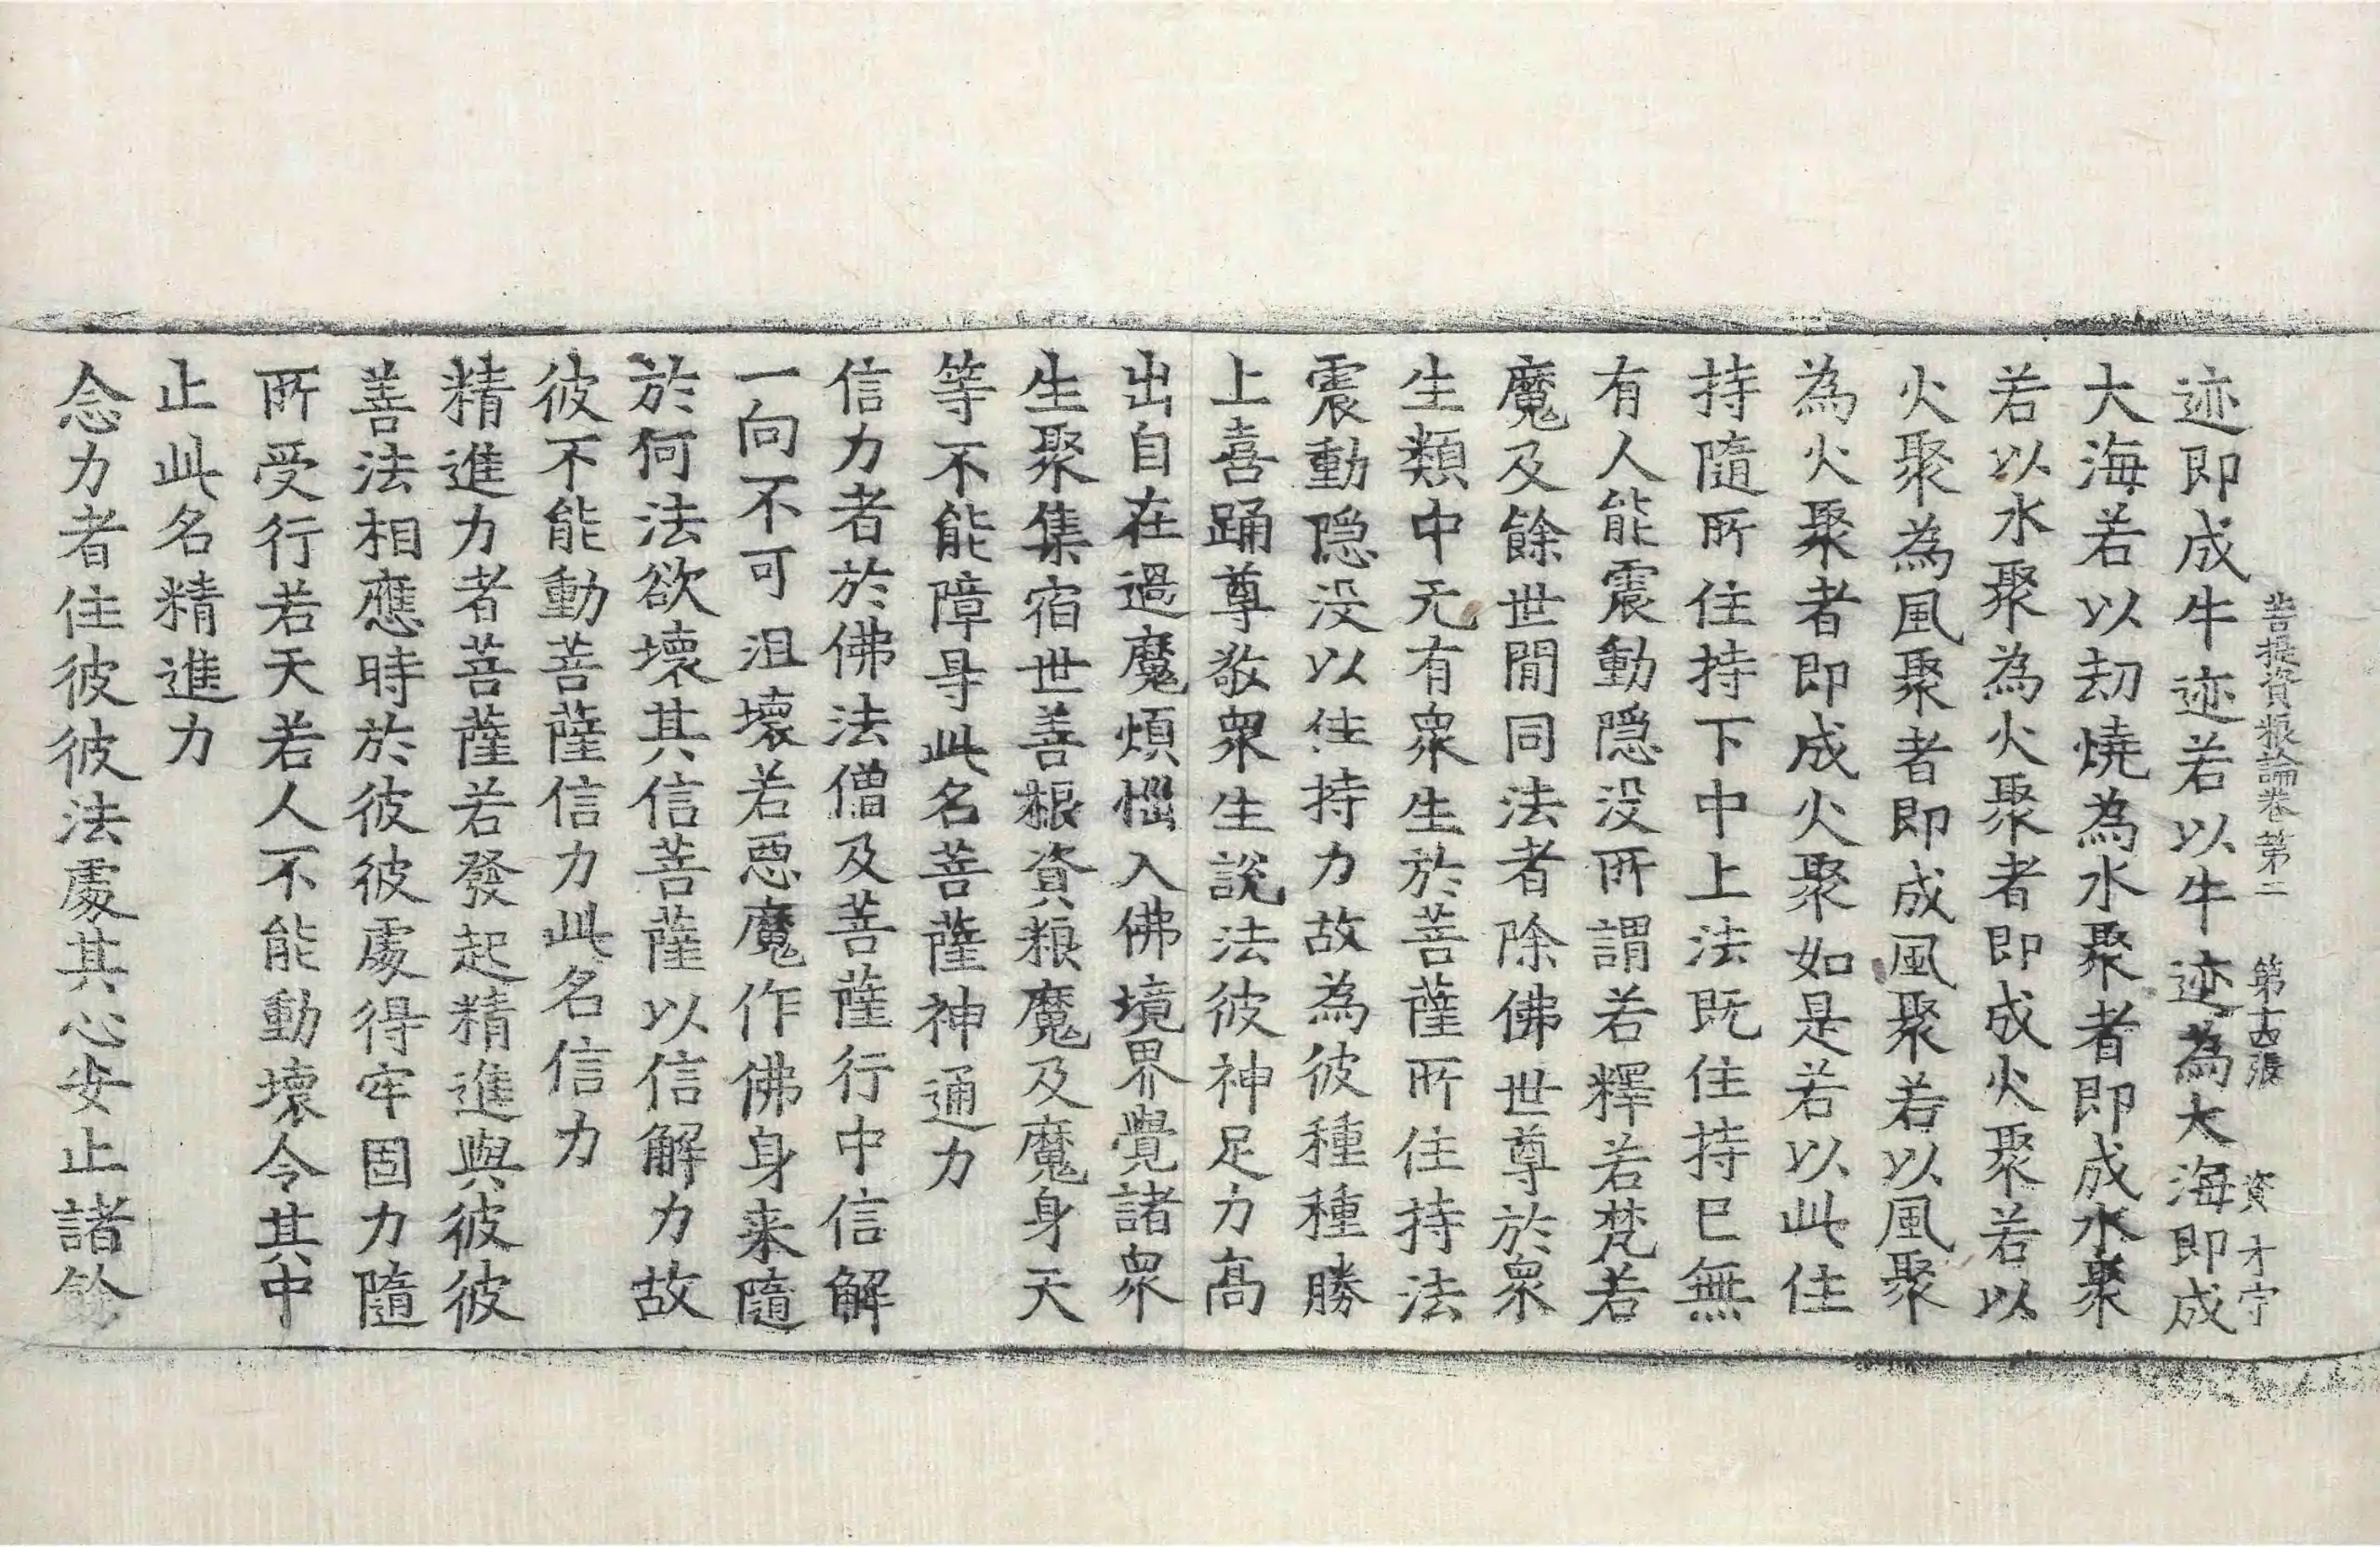 菩提資粮論卷第二　第十四張　資　才宁
迹即成牛迹若以牛迹為大海即成
大海若以劫燒為水聚者即成水聚
若以水聚為火聚者即成火聚若以
火聚為風聚者即成風聚若以風聚
為火聚者即成火聚如是若以此住
持隨所住持下中上法既住持已無
有人能震動隠没所謂若釋若梵若
魔及餘世間同法者除佛世尊於衆
生類中无有衆生於菩薩所住持法
震動隠没以住持力故為彼種種勝
上喜踊尊敬衆生說法彼神足力髙
出自在過魔煩惱入佛境界覺諸衆
生聚集宿世善根資粮魔及魔身天
等不能障㝵此名菩薩神通力
信力者於佛法僧及菩薩行中信解
一向不可沮壞若惡魔作佛身来隨
於何法欲壞其信菩薩以信解力故
彼不能動菩薩信力此名信力
精進力者菩薩若發起精進與彼彼
善法相應時於彼彼處得牢固力隨
所受行若天若人不能動壞令其中
止此名精進力
念力者住彼彼法處其心安止諸餘